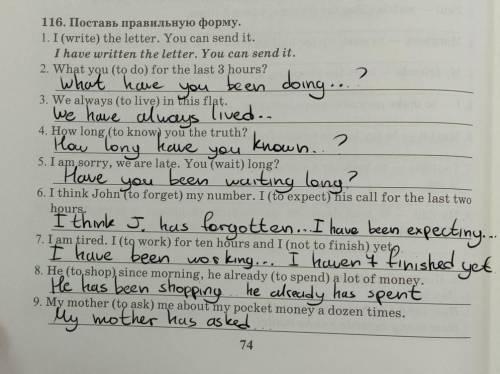 116. Поставь правильную форму.
1. I (write) the letter. You can send it.
I have written the letter. You can send it.
2. What you (to do) for the last 3 hours?
What have you been doing...?
3. We always (to live) in this flat.
We have always lived..
4. How long (to know) you the truth?
How long have you known..?
5. I am sorry, we are late. You (wait) long?
Have you been waiting long?
6. I think John (to forget) my number. I (to expect) his call for the last two
hours.
I think J. has forgotten... I have been expecting...
7. I am tired. I (to work) for ten hours and I (not to finish) yet.
I have been working... I haven't finished yet
8. He (to shop) since morning, he already (to spend) a lot of money.
He has been shopping he already has spent
9. My mother (to ask) me about my pocket money a dozen times.
My mother has asked...
74